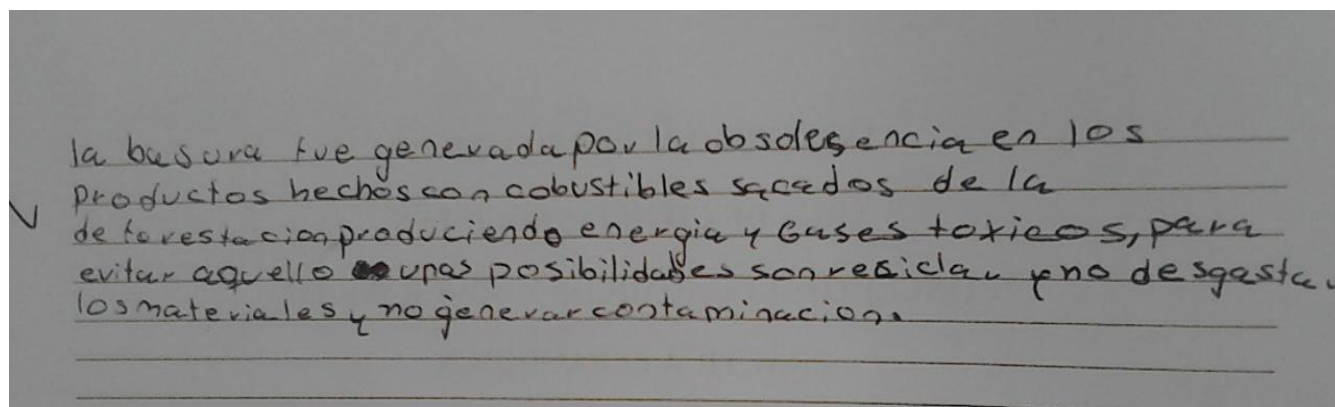 la basura fue generada por la obsolesencia en los
productos hechos con cobustibles sacados de la
deforestacion produciendo energia y Gases toxicos, para
evitar aquello unas posibilidades son reciclar y no desgastar
los materiales y no generar contaminacion.